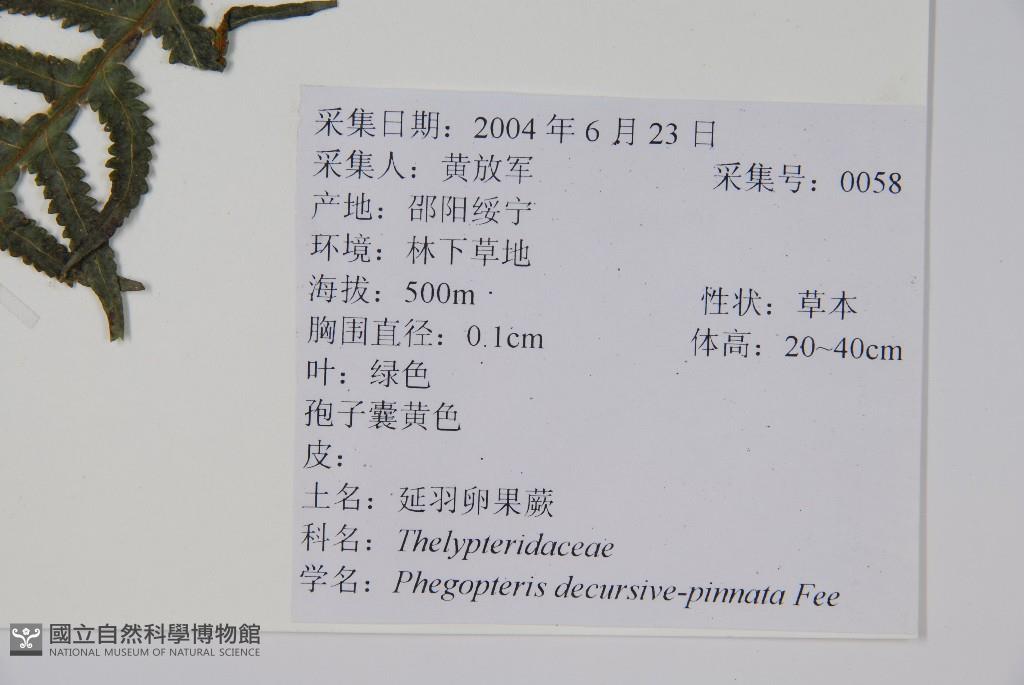 采集日期：2004 年 6 月 23 日
采集人：黄放军 采集号：0058
产地：邵阳绥宁
环境：林下草地
海拔：500m 性状：草本
胸围直径：0.1cm 体高：20~40cm
叶：绿色
孢子囊黄色
皮：
土名：延羽卵果蕨
科名：Thelypteridaceae
学名：Phegopteris decursive-pinnata Fee
國立自然科學博物館
NATIONAL MUSEUM OF NATURAL SCIENCE